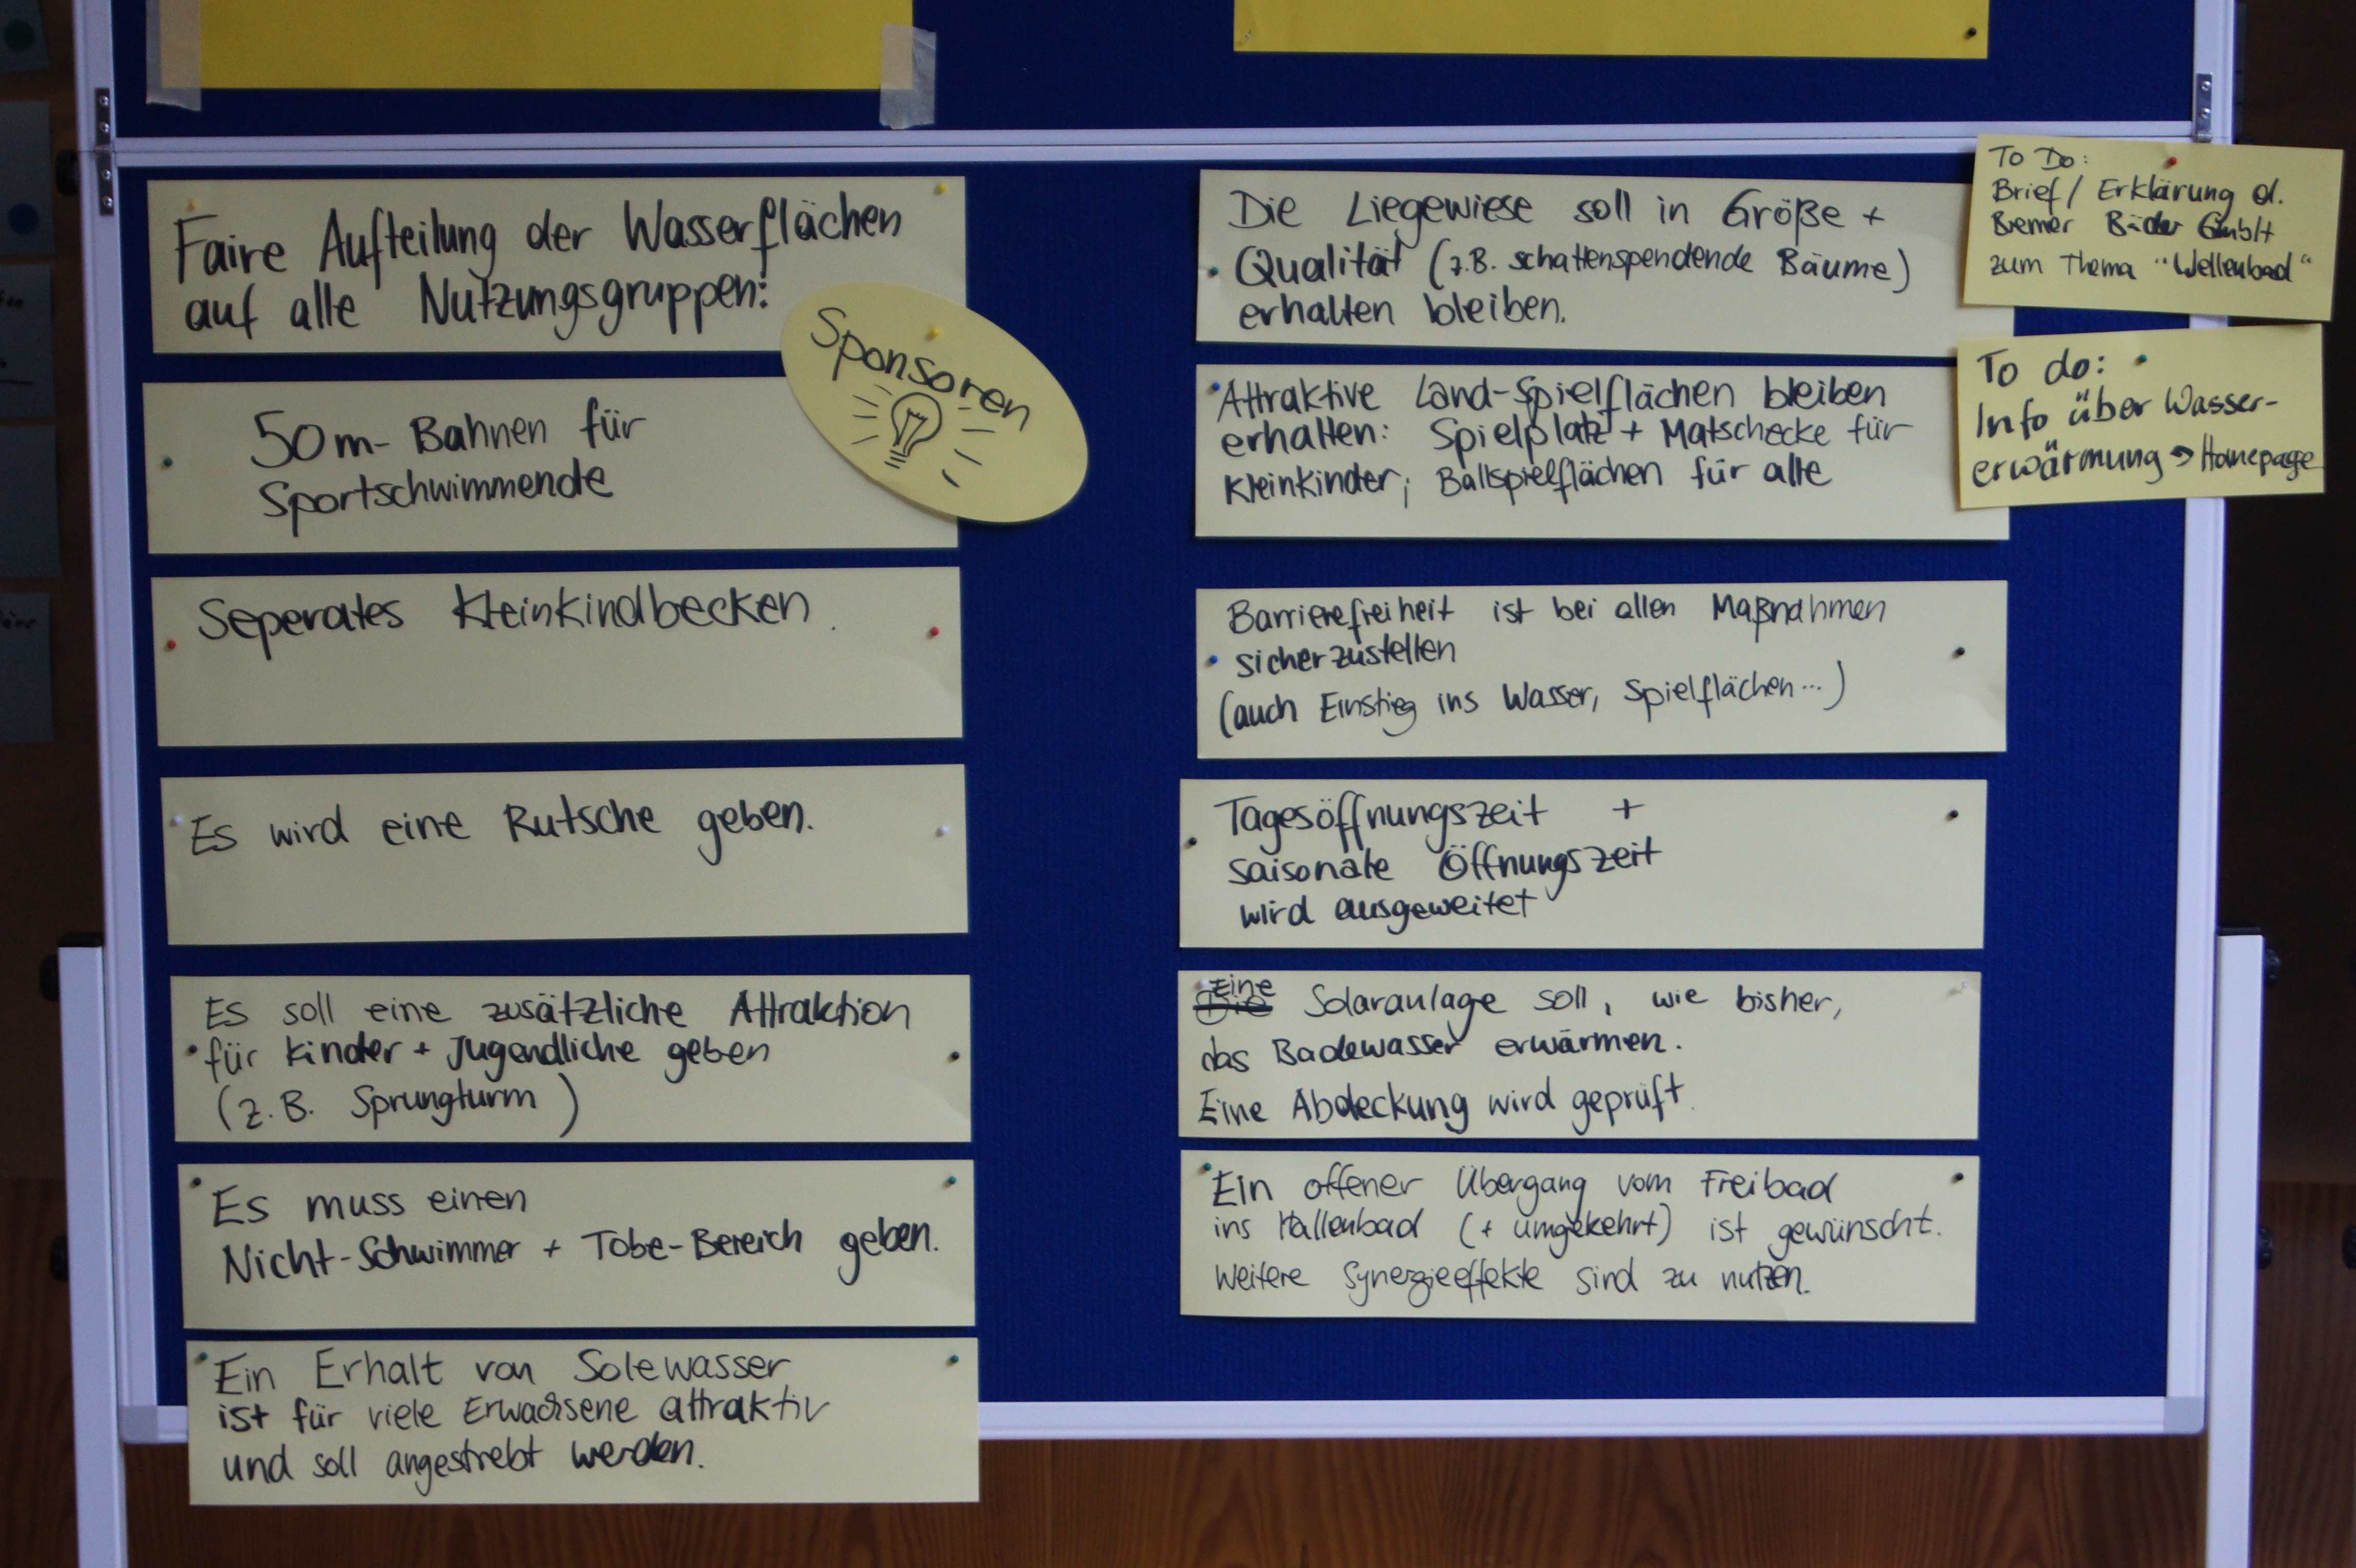 Faire Aufteilung der Wasserflächen
auf alle Nutzungsgruppen:
Sponsoren
50m-Bahnen für
Sportschwimmende
Seperates Kleinkindbecken.
Es wird eine Rutsche geben.
Es soll eine zusätzliche Attraktion
für Kinder + Jugendliche geben
(z.B. Sprungturm)
Es muss einen
Nicht-Schwimmer + Tobe-Bereich geben.
Ein Erhalt von Solewasser
ist für viele Erwachsene attraktiv
und soll angestrebt werden.
Die Liegewiese soll in Größe +
Qualität (z.B. schattenspendende Bäume)
erhalten bleiben.
Attraktive Land-Spielflächen bleiben
erhalten: Spielplatz + Matschecke für
Kleinkinder; Ballspielflächen für alle
Barrierefreiheit ist bei allen Maßnahmen
sicherzustellen
(auch Einstieg ins Wasser, Spielflächen...)
Tagesöffnungszeit +
saisonale Öffnungszeit
wird ausgeweitet
Eine
Die Solaranlage soll, wie bisher,
das Badewasser erwärmen.
Eine Abdeckung wird geprüft.
Ein offener Übergang vom Freibad
ins Hallenbad (+ umgekehrt) ist gewünscht.
Weitere Synergieeffekte sind zu nutzen.
To Do:
Brief/Erklärung d.
Bremer Bäder GmbH
zum Thema "Wellenbad"
To do:
Info über Wasser-
erwärmung → Homepage